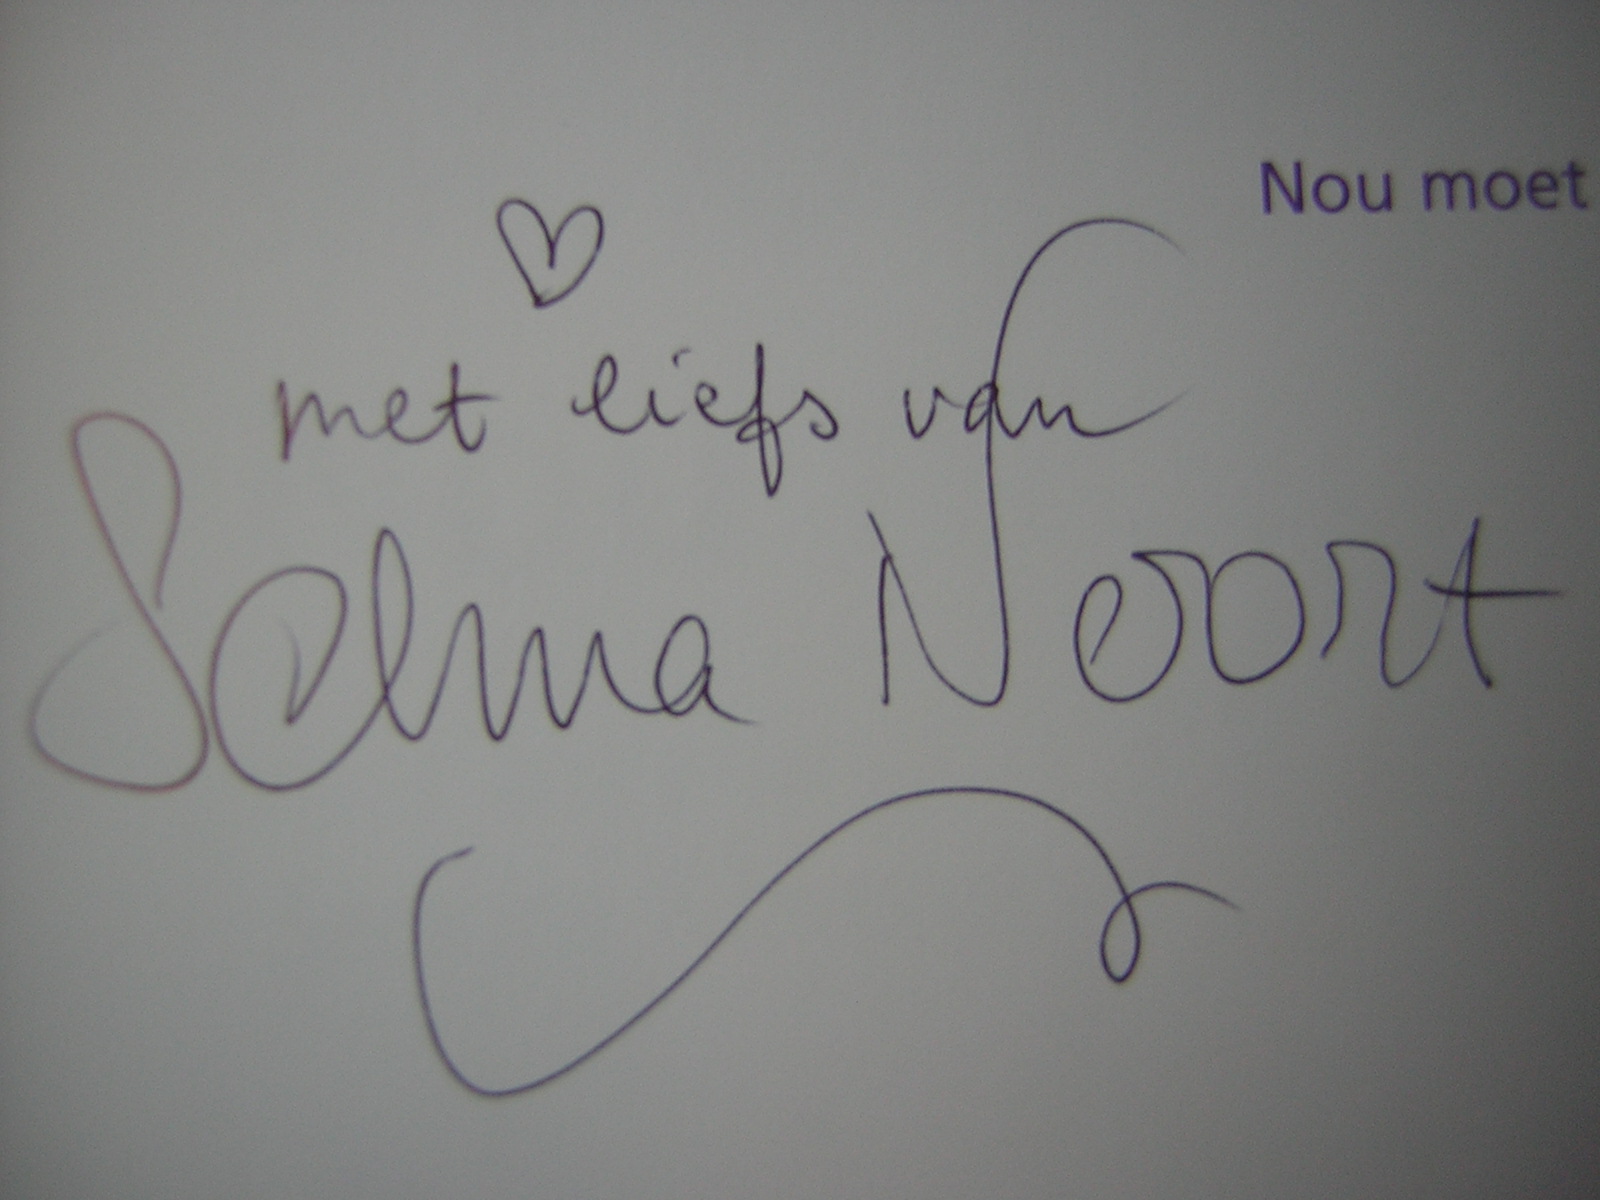 Nou moet
met liefs van
Selma Noort